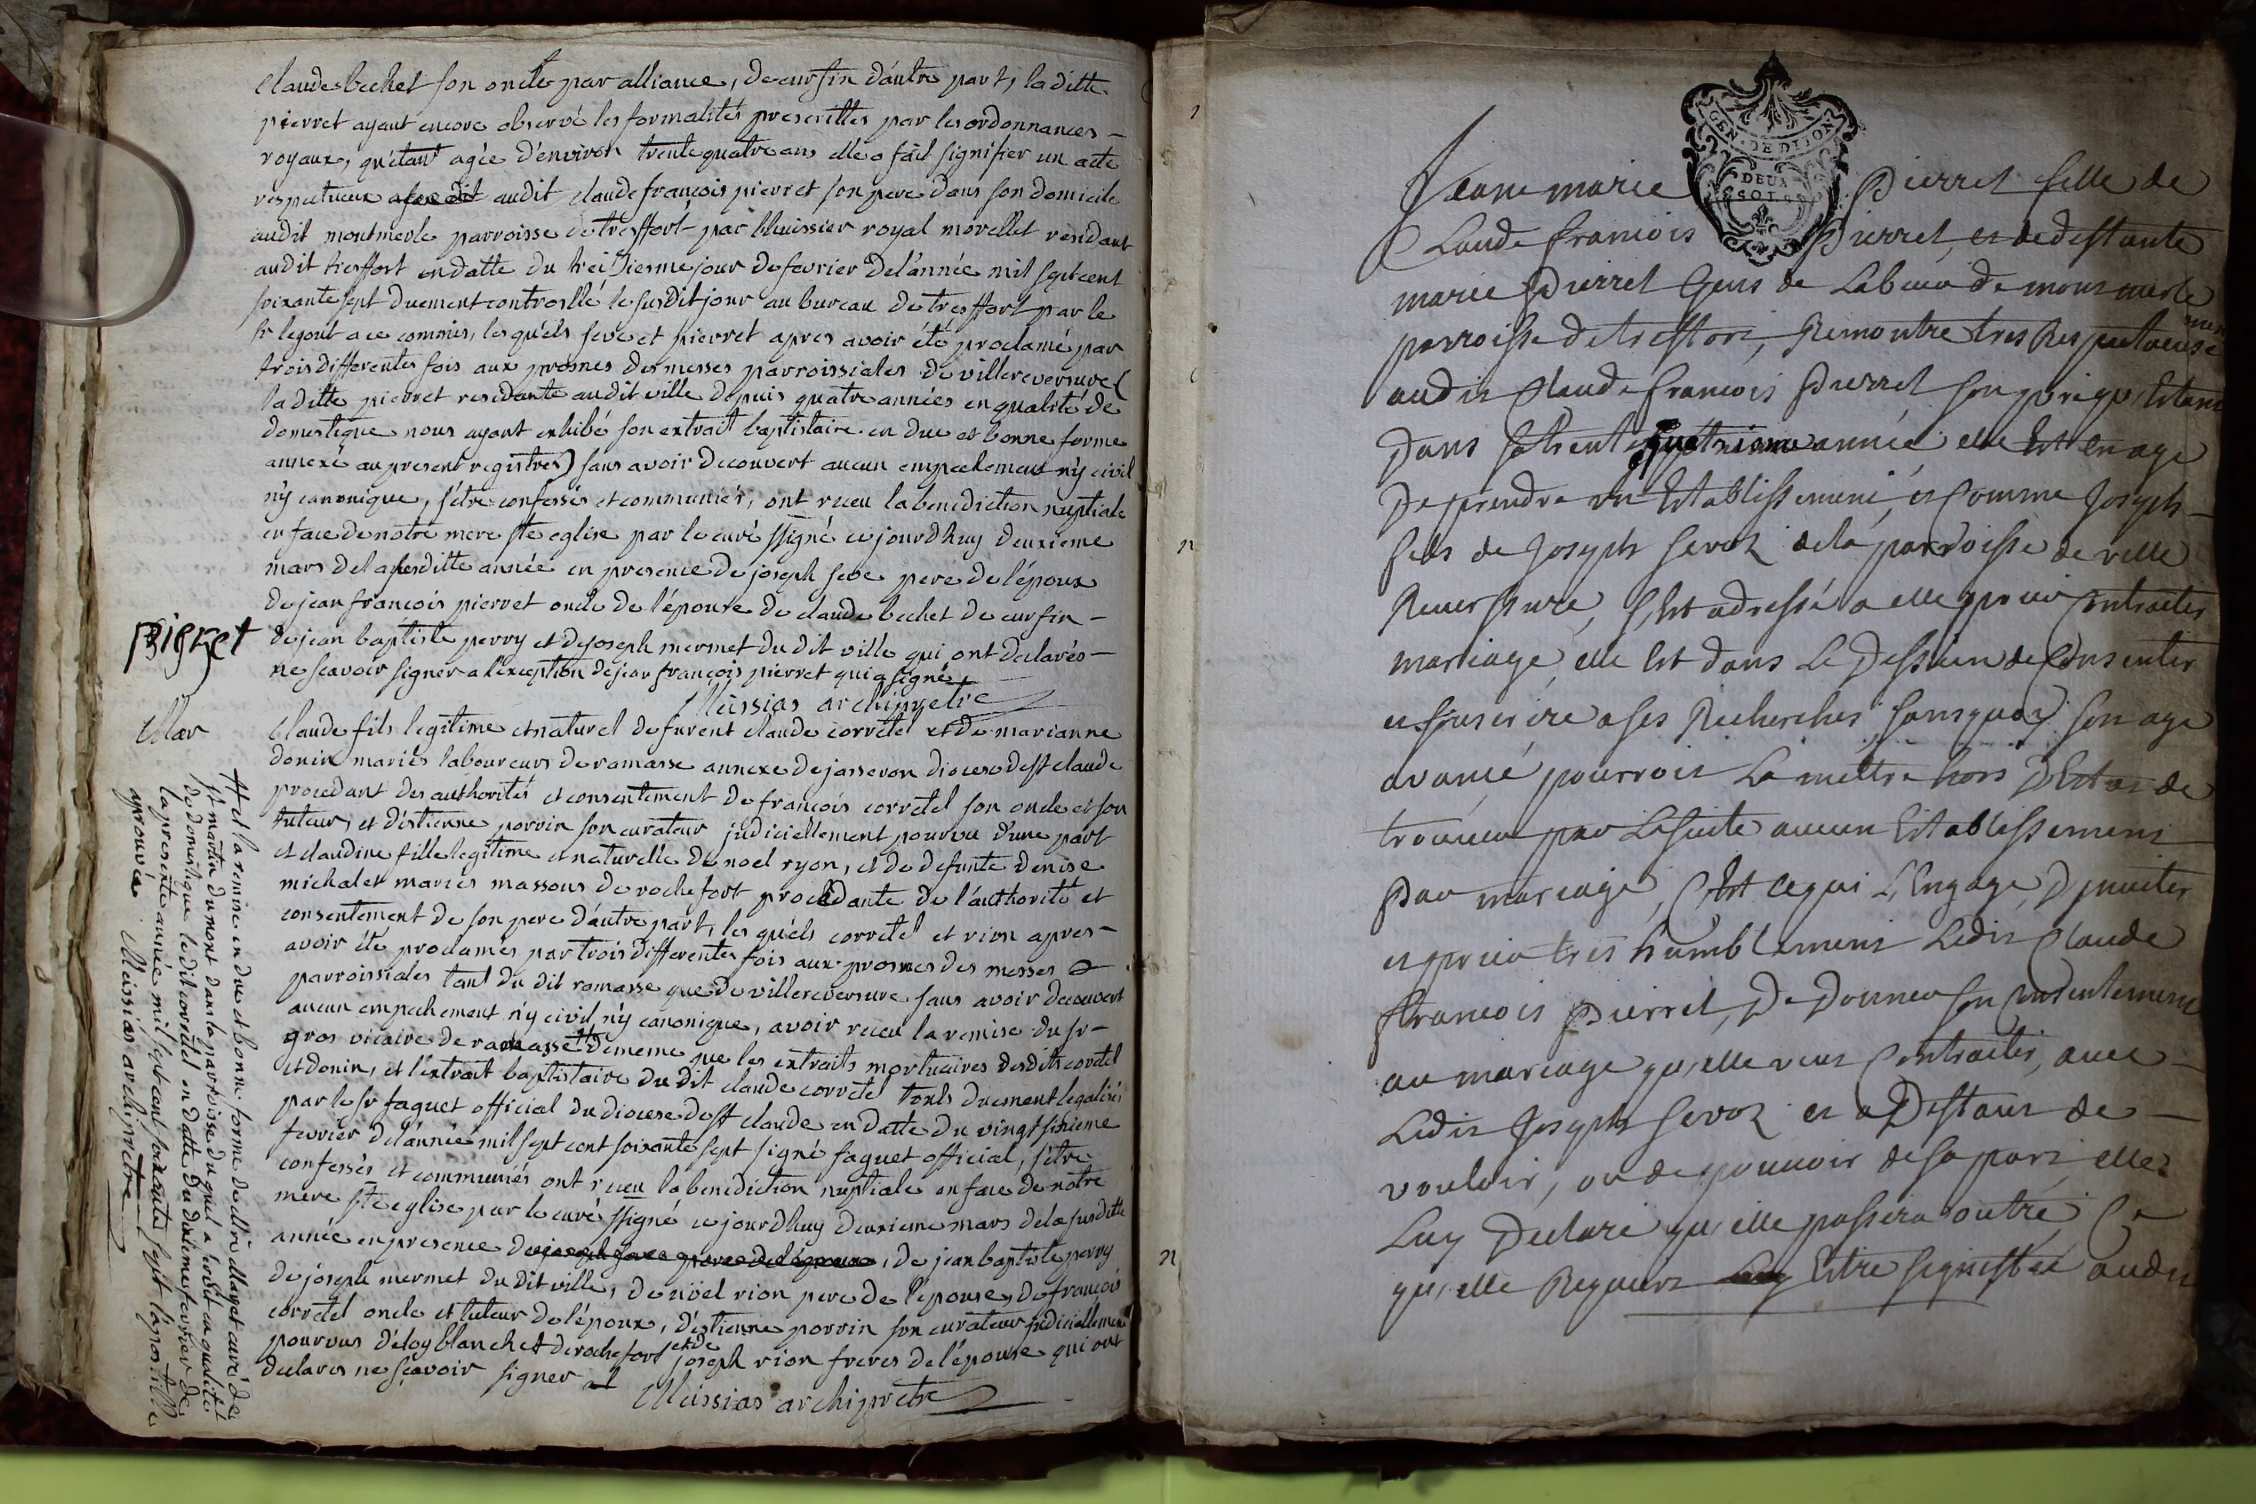 Claude bechet son oncle par alliance, de curfin d'autre part, la ditte
pierret ayant encore observé les formalités prescrittes par les ordonnances –
royaux, qu'étant agée d'environ trente quatre ans elle a fait signifier un acte
respectueux audit claude françois pierret son pere dans son domicile
audit montmerle parroisse de treffort par l'huissier royal morellet residant
audit treffort en datte du treiziesme jour de fevrier de l'année mil sept cent
soixante sept duement controllé le susdit jour au bureau de treffort par le
sr legout a ce commis, lesquels seve et pierret apres avoir été proclamé par
trois differentes fois aux prosnes des messes parroissiales de villereversure (
la ditte pierret residante audit ville depuis quatre années en qualité de
domestique nous ayant exhibé son extrait baptistaire en due et bonne forme
annexé au present registre) sans avoir decouvert aucun empechement n'y civil
n'y canonique, s'être confessés et communiés, ont receu la benediction nuptiale
en face de notre mere ste eglise par le curé ssigné ce jourdhuy deuxieme
mars de la susditte année en presence de joseph seve pere de l'époux
de jean françois pierret oncle de l'épouse de claude bechet de curfin –
de jean baptiste perry et de joseph mermet du dit ville qui ont declarés –
ne scavoir signer a l'exception de jean françois pierret qui a signé
pierret
Meissias archiprètre
Mar
Claude fils legitime et naturel de furent claude corretel et de marianne
donin mariés laboureurs de ramasse annexe de jasseron diocese de st claude
procedant des authorités et consentement de françois corretel son oncle et son
tuteur, et d'estienne porrin son curateur judiciellement pourvu d'une part
et claudine fille legitime et naturelle de noel ryon, et de defunte denise
michalet mariés massons de rochefort procedante de l'authorité et
consentement de son pere d'autre part, les quels corretel et rion apres –
avoir été proclamés par trois differentes fois aux prosnes des messes
parroissiales tant du dit ramasse que de villereversure sans avoir decouvert
aucun empechement n'y civil n'y canonique, avoir receu la remise du sr –
gros vicaire de ramasse # de meme que les extraits mortuaires desdits corretel
et donin, et l'extrait baptistaire du dit claude corretel touts duement legalisés
par le sr faguet official du diocese de st claude en datte du vingt sixieme
fevrier de l'année mil sept cent soixante sept signé faguet official, s'être
confessés et communiés ont receu la benediction nuptiale en face de notre
mere ste eglise par le curé ssigné ce jourdhuy deuxieme mars de la susditte
année en presence de joseph seve pere de l'époux, de jean baptiste perry
de joseph mermet du dit ville, de nöel rion pere de l'épouse, de françois
corretel oncle et tuteur de l'époux, d'estienne porrin son curateur judiciellement
pourvus d'eloy blanchet de rochefort et de joseph rion freres de l'épouse qui ont
declarés ne sçavoir signer
Meissias archiprètre
# et la remise en due et bonne forme de ... curé de
st martin du mont dans la parroisse duquel a residé en qualité
de domestique ledit corretel en datte du dixieme fevrier de
la presente année mil sept cent soixante sept l'apostille
aprouvée. Meissias archiprètre
GEN. DE DIJON
DEUX
SOLS
Jeane marie Pierret fille de
Claude francois Pierret, et de deffunte
marie Pierret Gens de Labeur de mont merle
parroisse de treffort, Remontre tres Respectueusement
audit Claude francois Pierret son pere qu'Estant
Dans sa trente quatrieme année elle Est en age
De prendre un Establissement, et Comme Joseph –
fils de Joseph Servoz de la parroisse de ville
Reversure, s'Est adressé a elle pour Contracter
mariage, elle Est dans Le Dessein de Consentir
et souscrire a ses Recherches, sans quoy son age
avancé pourroit La mettre hors D'Estat de
trouver par La suite aucun Establissement
Par mariage, C'Est ce qui L'Engage D'inviter
et prier tres humblement Ledit Claude
francois Pierret, De Donner son Consentement
au mariage qu'elle veut Contracter, avec –
Ledit Joseph Servoz et a Deffaut de –
vouloir, ou de pouvoir de sa part, elle
Luy Declare qu'elle passera outre, Ce
qu'elle Requiert Estre signiffié audit